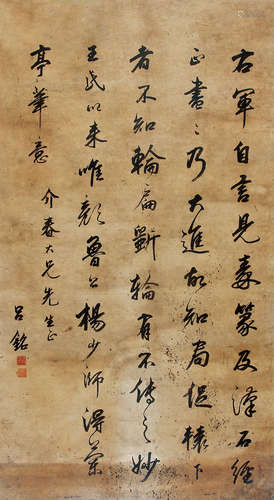 右軍自言見秦篆及漢石經
正書〻乃大進故知局促轅下
者不知輪扁斲輪有不傳之妙
王氏以來唯顏魯公楊少師得蘭
亭筆意
介春大兄先生正
呂銘